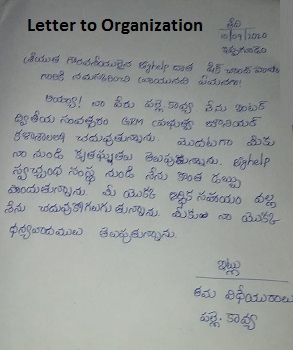 Letter to Organization
తేది
15/09/2020
శ్రీయుత గౌరవనీయులైన Bghelp దాత షేక్ చాంద్ పాషా
గారికి నమస్కరించి వ్రాయునది ఏమనగా!
అయ్యా! నా పేరు పల్లె. కావ్య నేను ఇంటర్
ద్వితీయ సంవత్సరం GRM ప్రభుత్వ జూనియర్
కళాశాలలో చదువుతున్నాను. మొదటగా మీకు
నా నుండి కృతజ్ఞతలు తెలుపుతున్నాను. Bghelp
స్వచ్ఛంధ సంస్థ నుండి నేను కొంత డబ్బు
పొందుతున్నాను. మీ యొక్క ఆర్థిక సహాయం వల్ల
నేను చదువుకోగలుగుతున్నాను. మీకు నా యొక్క
ధన్యవాదములు తెలుపుతున్నాను.
ఇట్లు
తమ విధేయురాలు
పల్లె. కావ్య